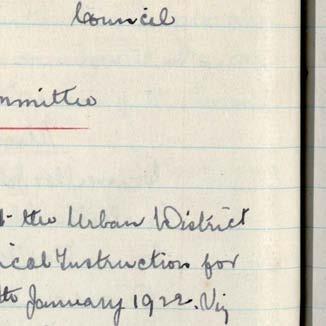 Council
mmittee
the Urban District
ical Instruction for
th January 1922. Viz